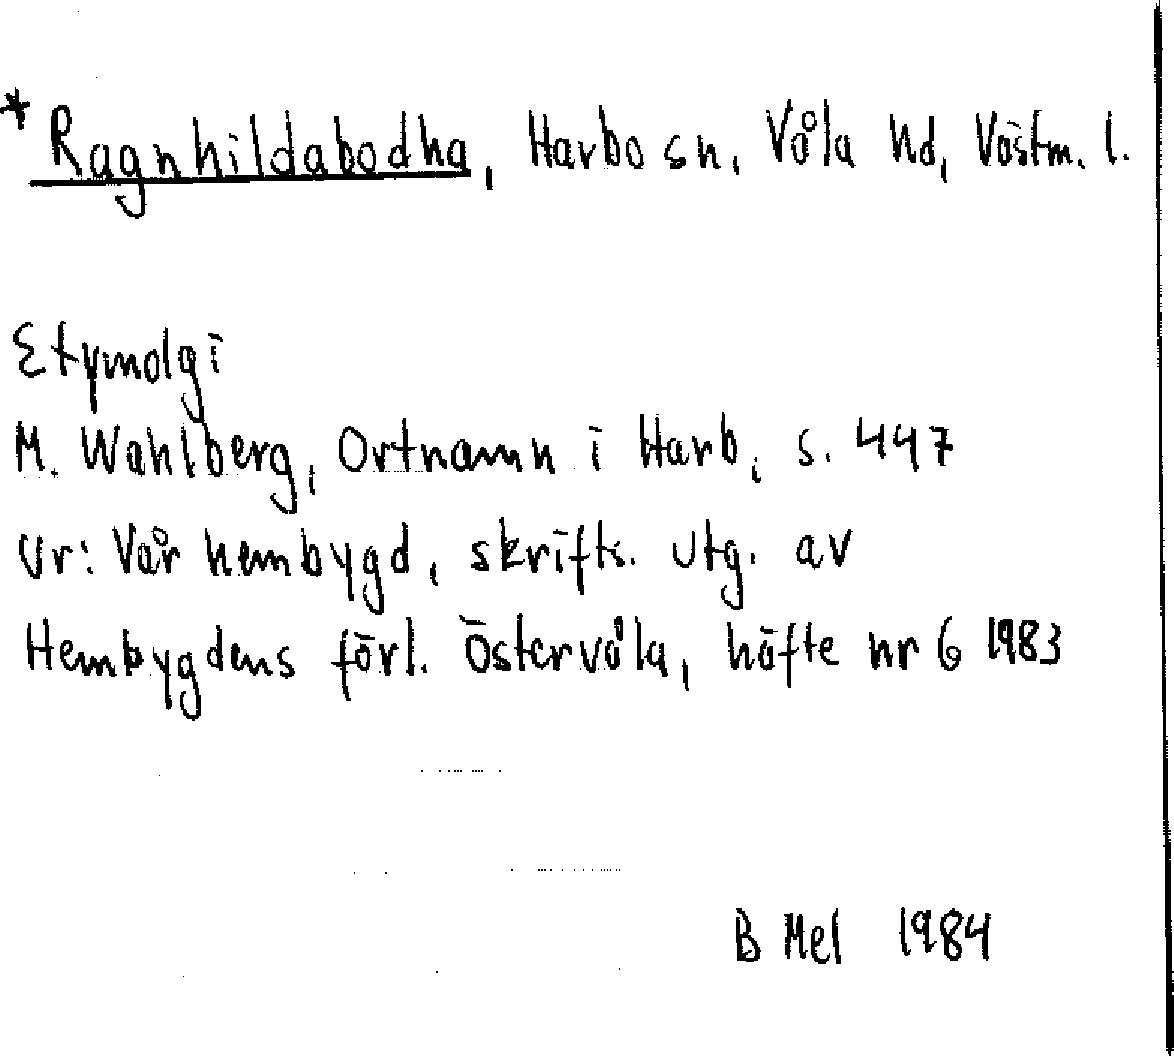 * Ragnhildabodha, Harbo sn, Våla hd, Västm. l.
Etymolgi
M. Wahlberg, Ortnamn i Harb, s. 447
Ur: Vår hembygd, skrifts. utg. av
Hembygdens förl. Östervåla, häfte nr 6 1983
B Mel 1984